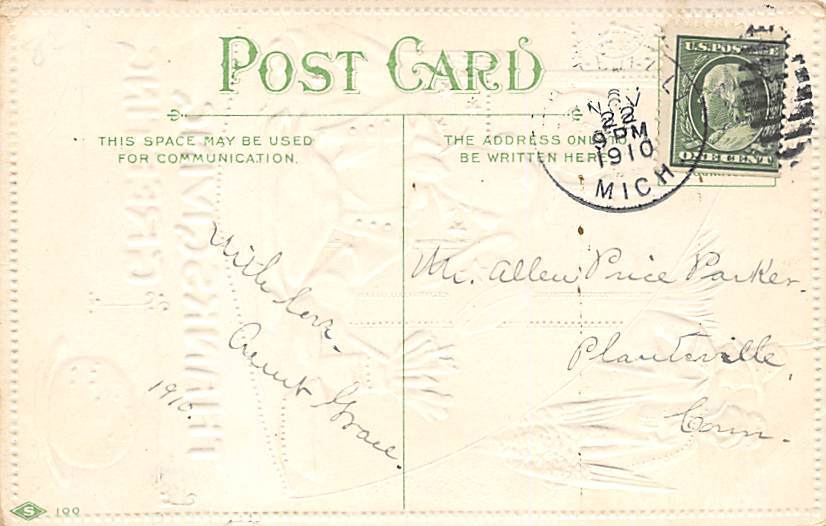 POST CARD
THIS SPACE MAY BE USED
FOR COMMUNICATION.
THE ADDRESS ONLY TO
BE WRITTEN HERE
U.S. POSTAGE
ONE CENT
NOV
22
9 PM
1910
MICH
With love
Aunt Grace.
1910.
Mr. Allen Price Parker.
Plantsville,
Conn.
THANKSGIVING
GREETING
S 100